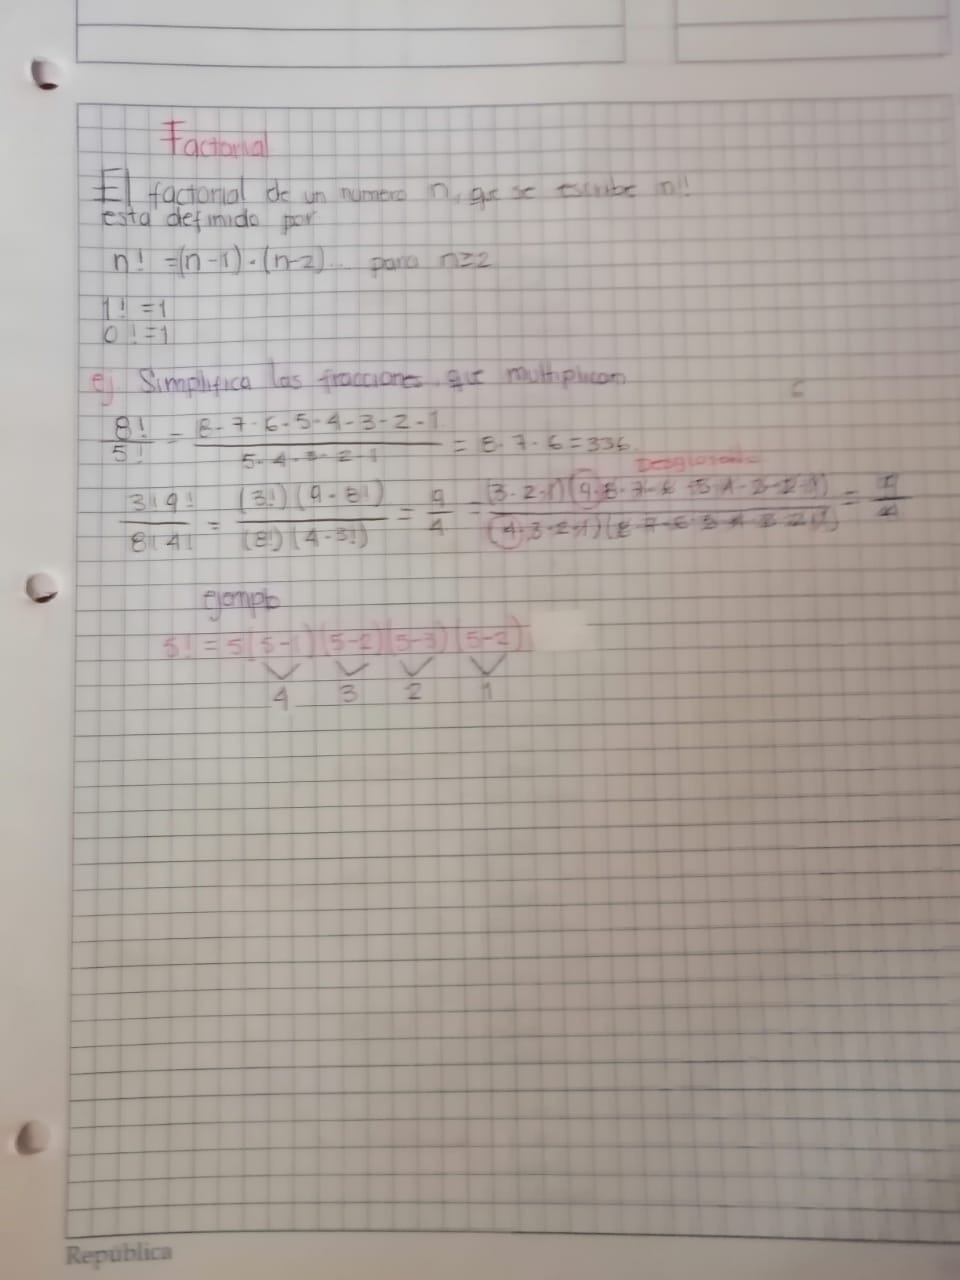 Factorial
El factorial de un numero n, que se escribe n!!
esta definido por
n! =(n-1)·(n-2)... para n≥2
1! =1
0! =1
ej. Simplifica las fracciones que multiplican
8!/5! = 8·7·6·5·4·3·2·1/5·4·3·2·1 = 8·7·6=336
Desglosando
3!9!/8!4! = (3!)(9·8!)/(8!)(4·3!) = 9/4 = (3·2·1)(9·8·7·6·5·4·3·2·1)/(4·3·2·1)(8·7·6·5·4·3·2·1) = 9/4
ejemplo
5! = 5(5-1)(5-2)(5-3)(5-2)
4 3 2 1
República